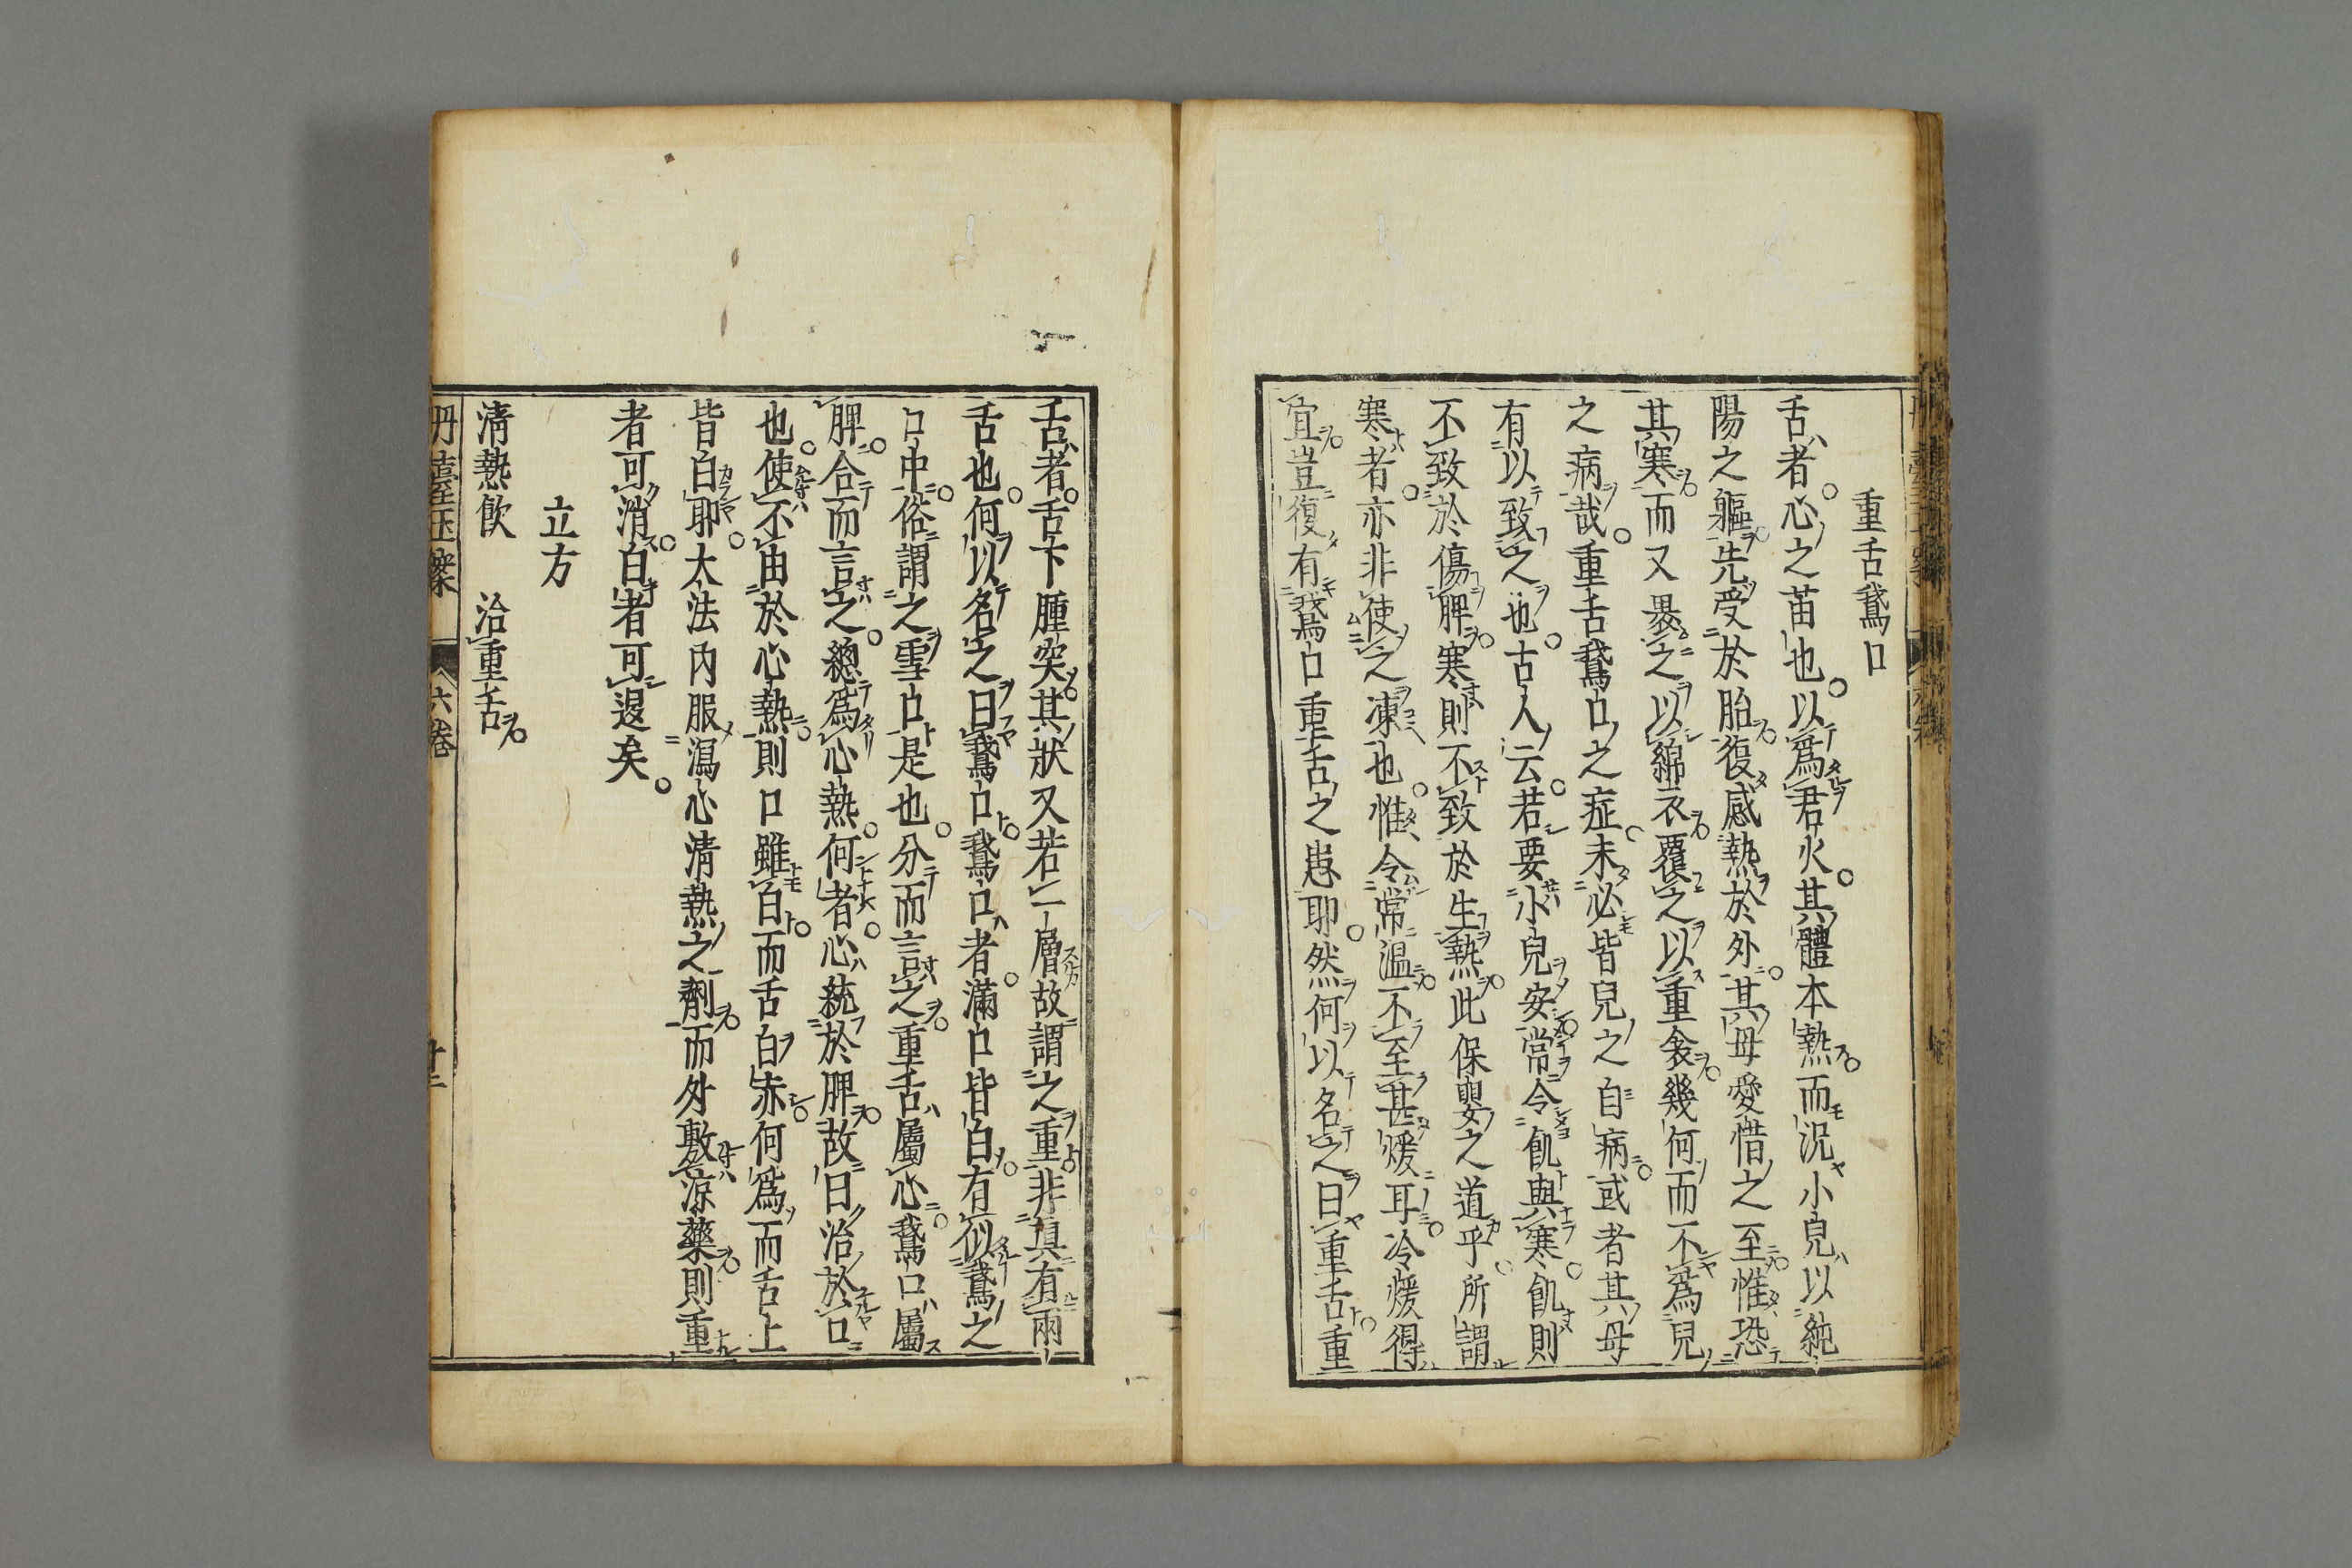 重舌鵞口
舌者心之苗也以爲君火其體本熱而況小兒以純
陽之軀先受於胎復感熱於外其母愛惜之至惟恐
其寒而又畏之以綿衣覆之以重衾幾何而不爲兒
之病哉重舌鵞口之症未必皆兒之自病或者其母
有以致之也古人云若要小兒安常令飢與寒飢則
不致於傷脾寒則不致於生熱此保嬰之道乎所謂
寒者亦非使之凍也惟令常溫不至甚煖耳冷煖得
宜豈復有鵞口重舌之患耶然何以名之曰重舌重
舌者舌下腫突其狀又若一層故謂之重非真有兩
舌也何以名之曰鵞口鵞口者滿口皆白有似鵞之
口中俗謂之雪口是也分而言之重舌屬心鵞口屬
脾合而言之總爲心熱何者心統於脾故曰治於口
也使不由於心熱則口雖白而舌白赤何爲而舌上
皆白耶大法內服瀉心清熱之劑而外敷涼藥則重
者可消白者可退矣
立方
清熱飲　治重舌
丹臺玉案　六卷　十二